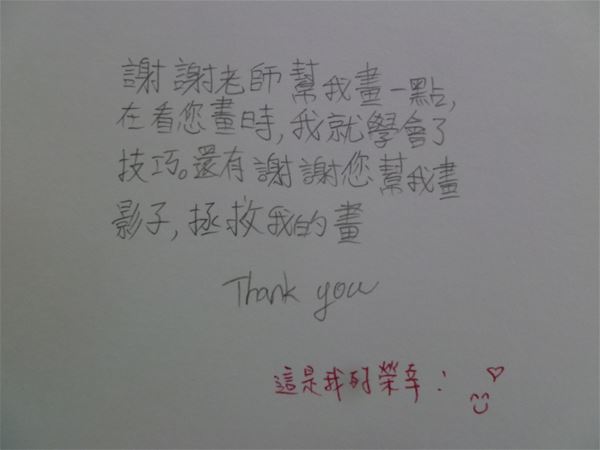 謝謝老師幫我畫一點,
在看您畫時,我就學會了
技巧。還有謝謝您幫我畫
影子,拯救我的畫
Thank you
這是我的榮幸: